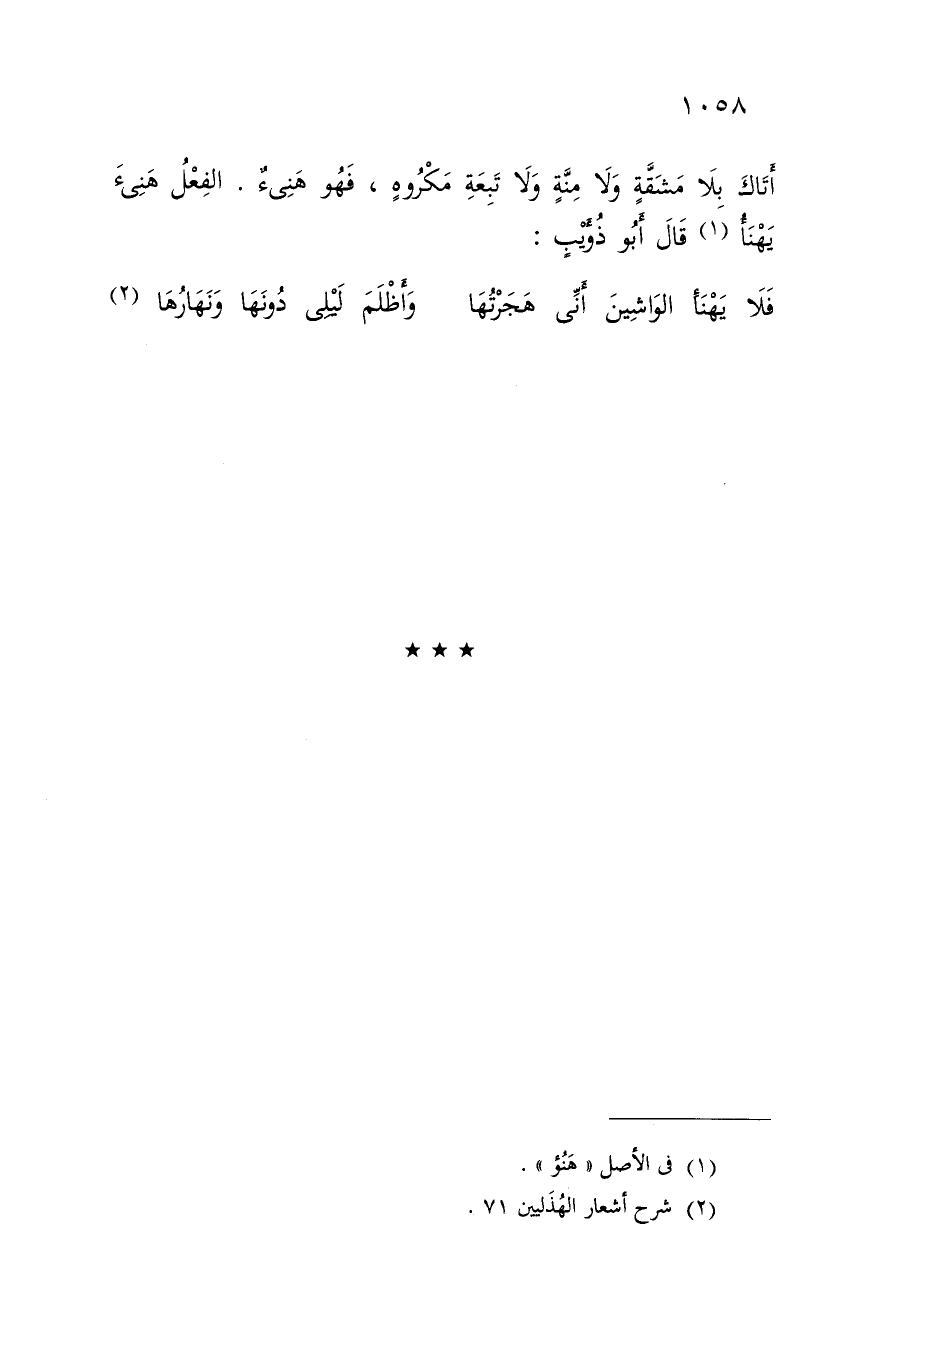 ١٠٥٨
أَتَاكَ بِلَا مَشَقَّةٍ وَلَا مِنَّةٍ وَلَا تَبِعَةِ مَكْرُوهٍ ، فَهُو هَنِىءٌ . الفِعْلُ هَنِىءَ
يَهْنَأُ (١) قَالَ أَبُو ذُؤَيْبٍ :
فَلَا يَهْنَأ الوَاشِينَ أَنِّى هَجَرْتُهَا وَأَظْلَمَ لَيْلِى دُونَهَا وَنَهَارُهَا (٢)
★ ★ ★
(١) فى الأصل « هَنُؤ » .
(٢) شرح أشعار الهُذَليين ٧١ .